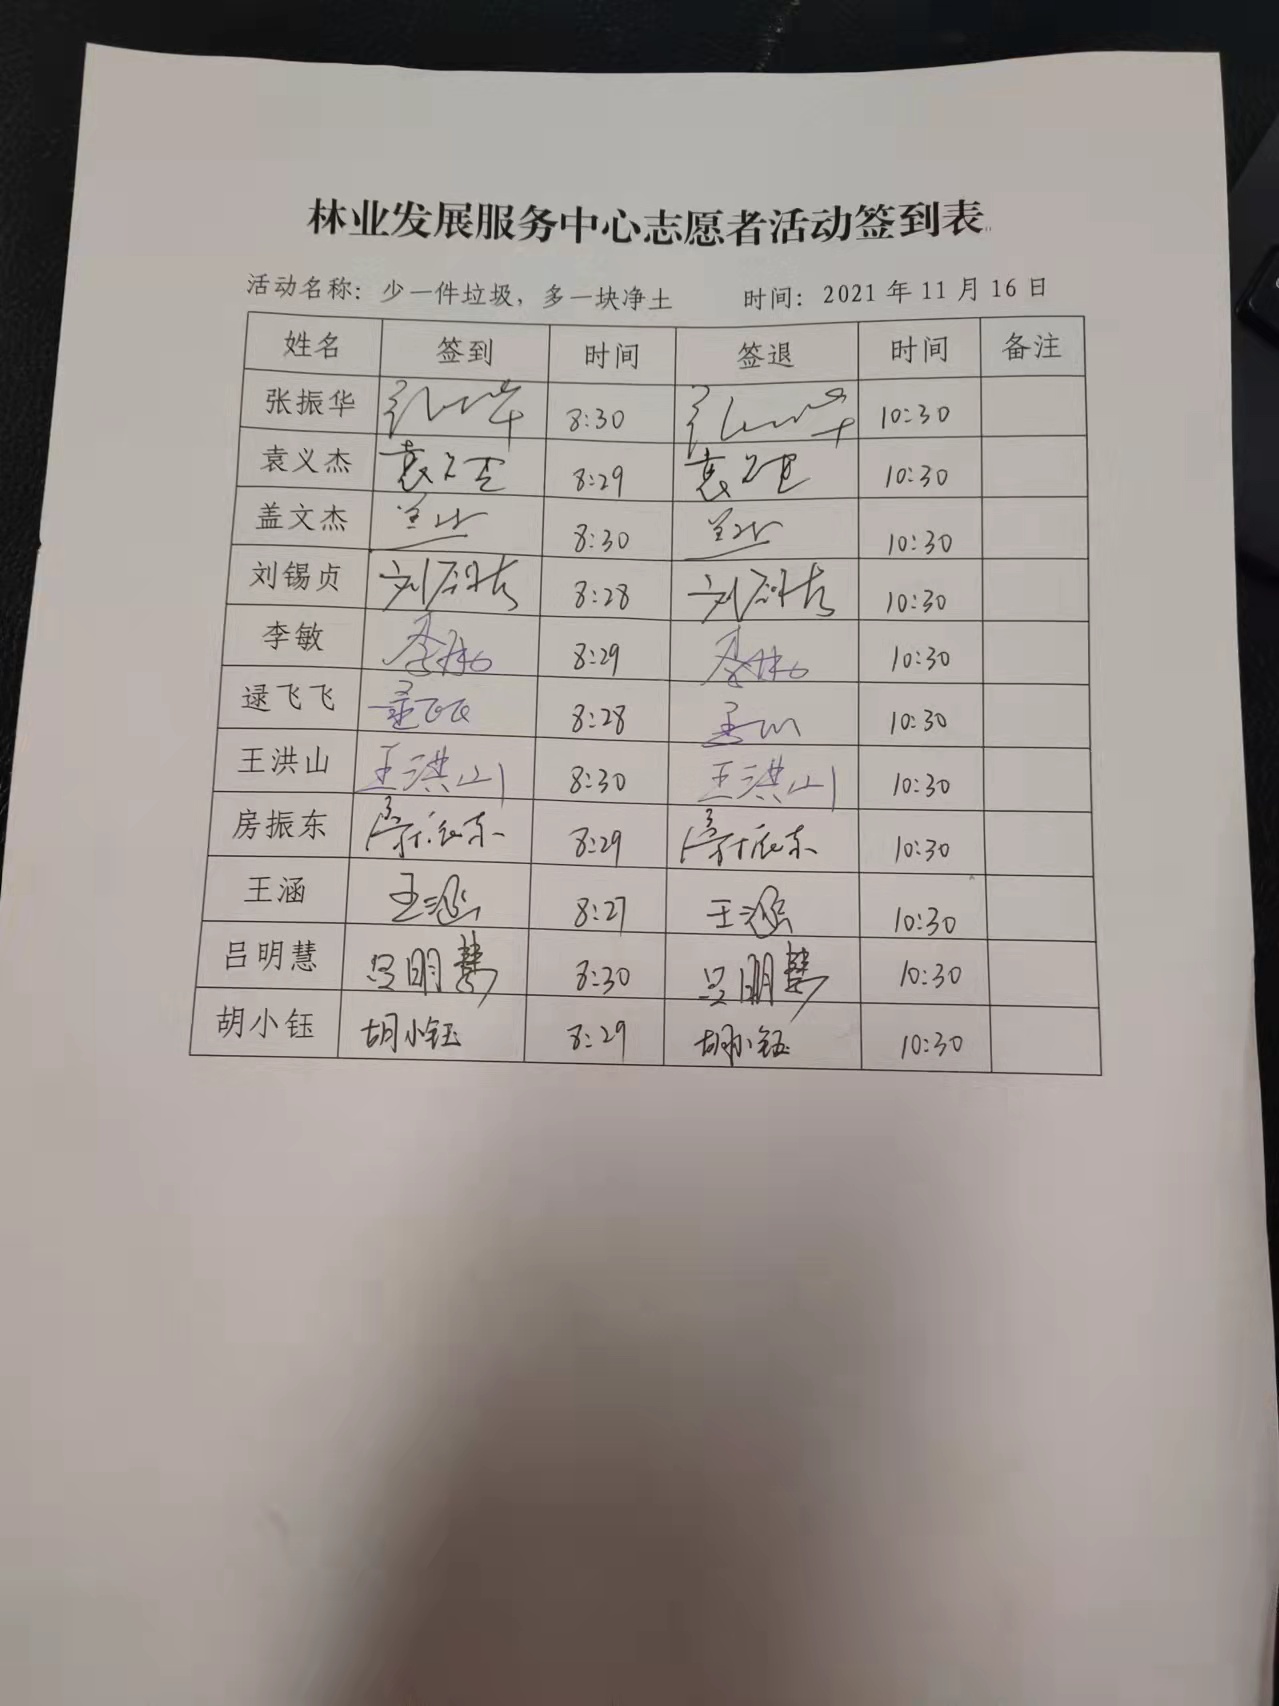 林业发展服务中心志愿者活动签到表
活动名称：少一件垃圾，多一块净土 时间：2021 年 11 月 16 日
姓名 签到 时间 签退 时间 备注
张振华 8:30 10:30
袁义杰 袁义杰 8:29 袁义杰 10:30
盖文杰 8:30 10:30
刘锡贞 8:28 10:30
李敏 李敏 8:29 李敏 10:30
逯飞飞 逯飞飞 8:28 10:30
王洪山 王洪山 8:30 王洪山 10:30
房振东 房振东 8:29 房振东 10:30
王涵 王涵 8:27 王涵 10:30
吕明慧 吕明慧 8:30 吕明慧 10:30
胡小钰 胡小钰 8:29 胡小钰 10:30